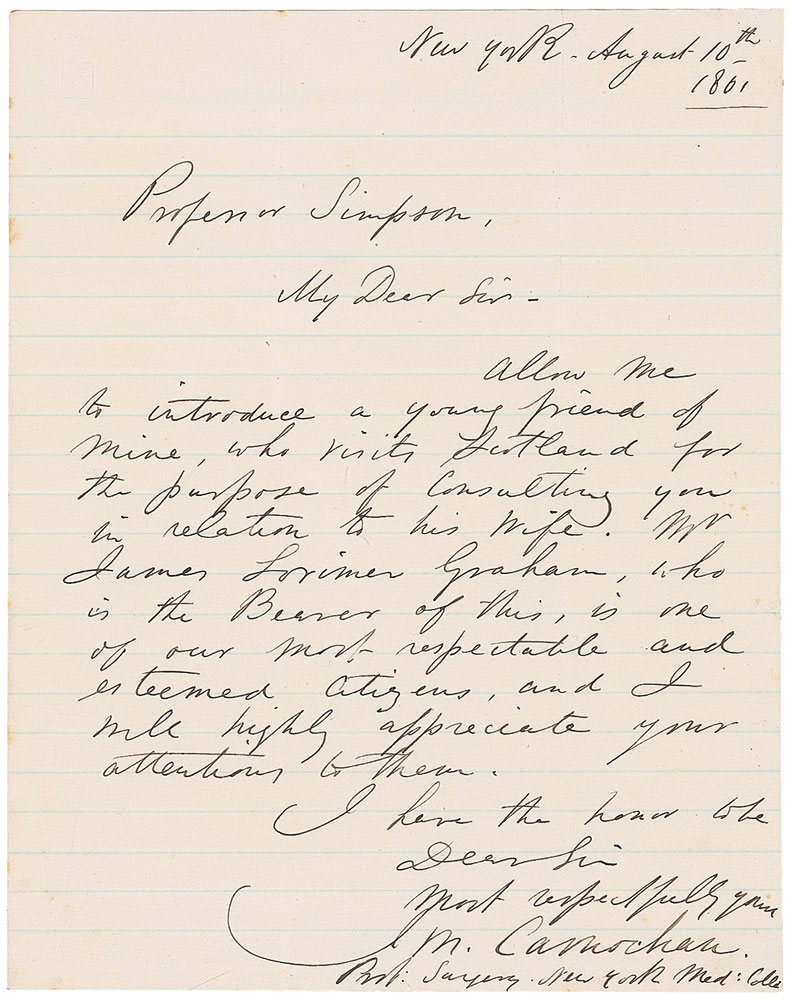 New York - August 10th
1861
Professor Simpson,
My Dear Sir -
Allow me
to introduce a young friend of
mine, who visits Scotland for
the purpose of Consulting you
in relation to his Wife. Mr
James Lorimer Graham, who
is the Bearer of this, is one
of our most respectable and
esteemed Citizens, and I
will highly appreciate your
attentions to them.
I have the honor to be
Dear Sir
Most respectfully yours
M. Carnochan.
Prof: Surgery. New York Med: Colle